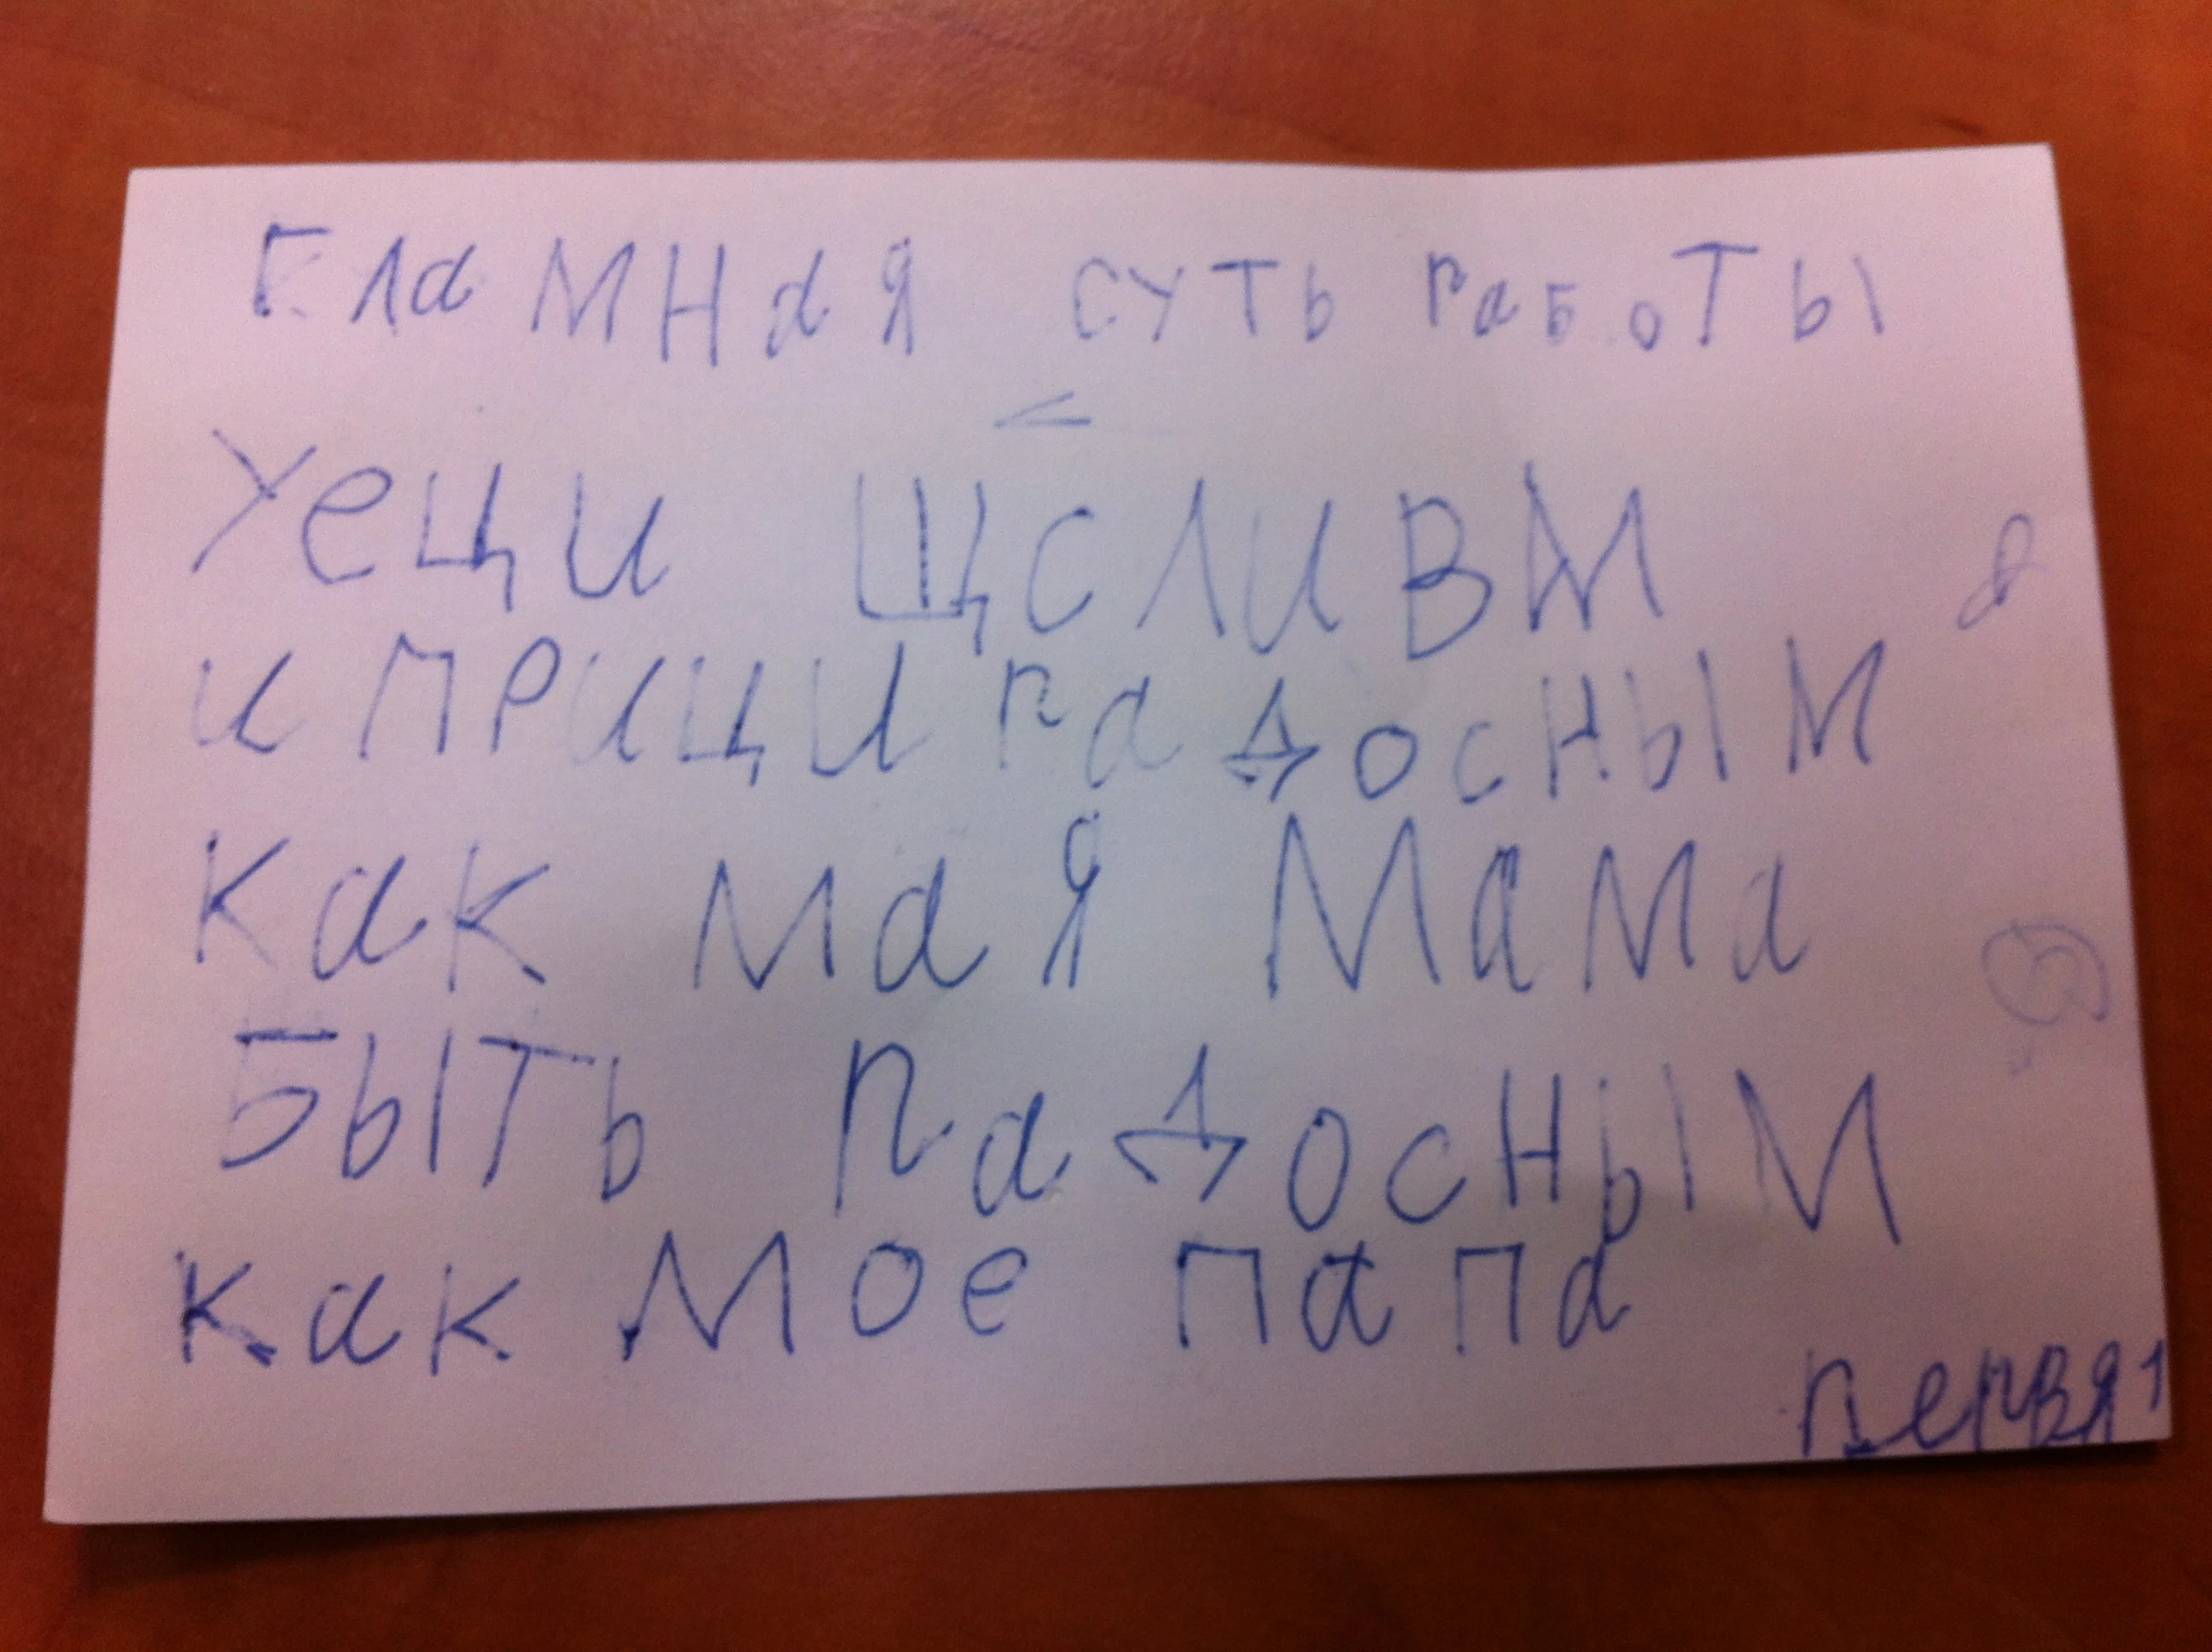 Гламная суть работы
уеци щсливм
и прици радосным
как мая мама
быть радосным
как мое папа
первя1